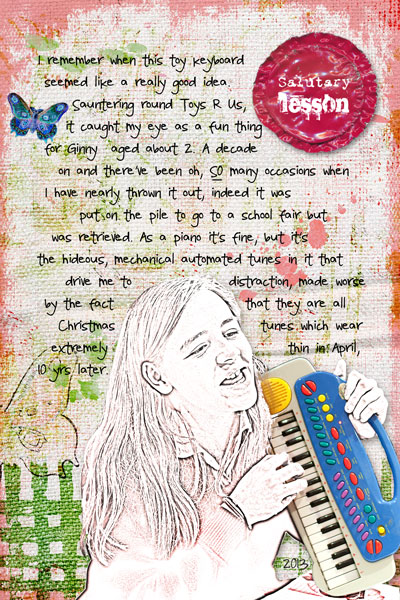 Salutary
lesson
I remember when this toy keyboard
seemed like a really good idea.
Sauntering round Toys R Us,
it caught my eye as a fun thing
for Ginny aged about 2. A decade
on and there've been oh, SO many occasions when
I have nearly thrown it out, indeed it was
put on the pile to go to a school fair but
was retrieved. As a piano it's fine, but it's
the hideous, mechanical automated tunes in it that
drive me to distraction, made worse
by the fact that they are all
Christmas tunes which wear
extremely thin in April,
10 yrs later.
2013